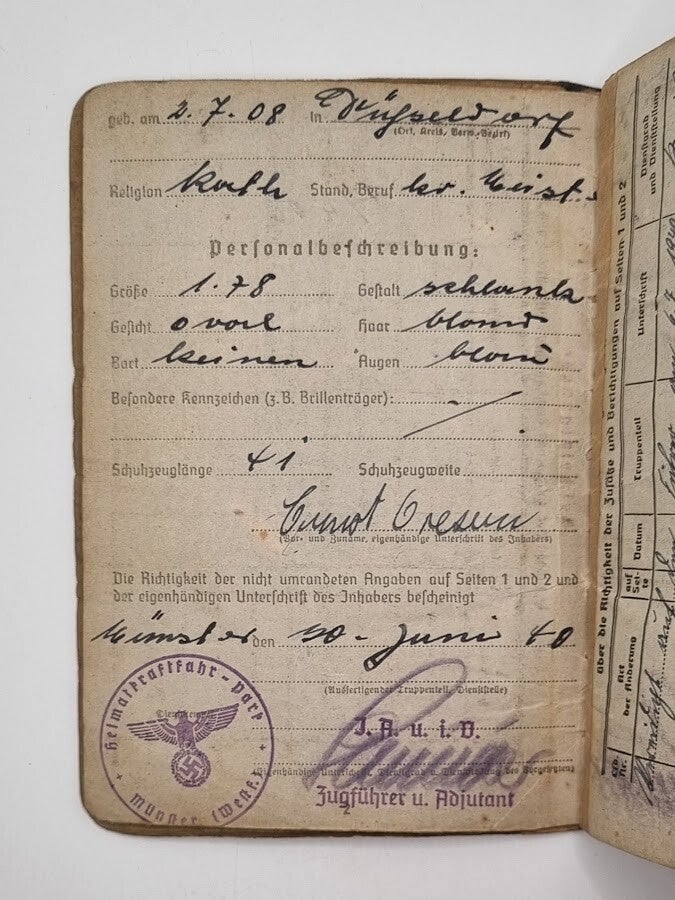 geb. am 2.7.08 in Düsseldorf
(Ort, Kreis, Verw.-Bezirk)
Religion kath Stand, Beruf kv. Meist.
Personalbeschreibung:
Größe 1.78 Gestalt schlank
Gesicht oval Haar blond
Bart keinen Augen blau
Besondere Kennzeichen (z.B. Brillenträger): -
Schuhzeuglänge 41 Schuhzeugweite
Ernst
(Vor- und Zuname, eigenhändige Unterschrift des Inhabers)
Die Richtigkeit der nicht umrandeten Angaben auf Seiten 1 und 2 und
der eigenhändigen Unterschrift des Inhabers bescheinigt
Münster den 30. Juni 40
(Ausfertigender Truppenteil, Dienststelle)
Heimatkraftfahr-Park
Münster (Westf.
J.A.u.i.V.
(Eigenhändige Unterschrift, Dienstgrad u. Dienststellung des Vorgesetzten)
Zugführer u. Adjutant
über die Richtigkeit der Zusätze und Berichtigungen auf Seiten 1 und 2
Lfd. Nr.
Art der Änderung
auf Seite
Datum
Truppenteil
Unterschrift
Dienstgrad und Dienststellung